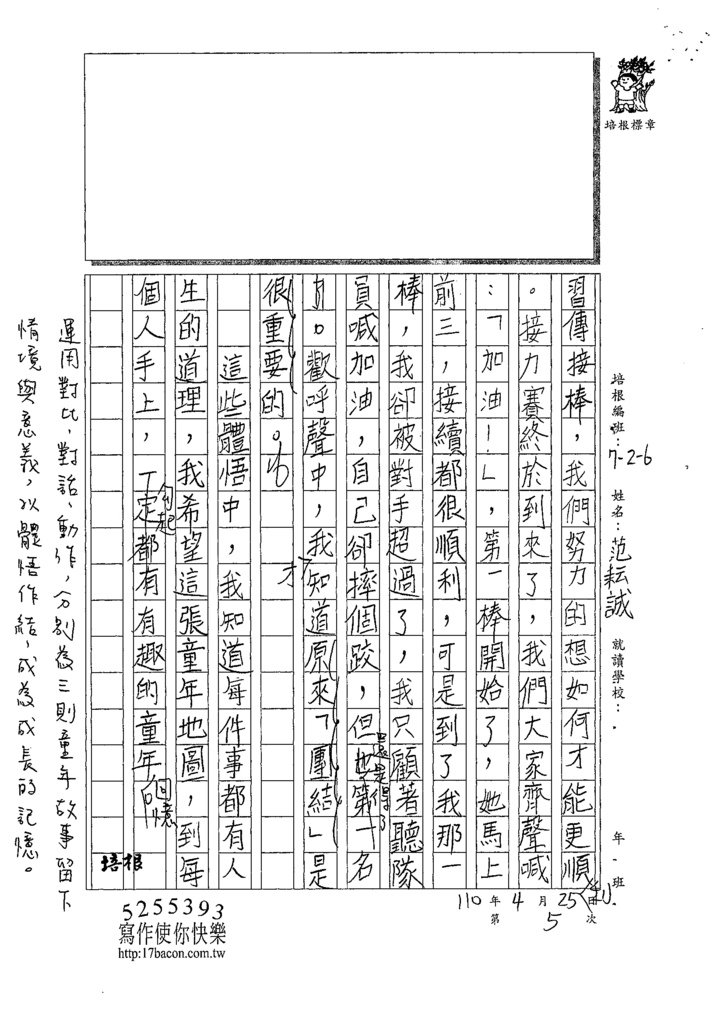 培根標章
培根編班：7-2-6 姓名：范耘誠 就讀學校： 年 班
習傳接棒，我們努力的想如何才能更順
。接力賽終於到來了，我們大家齊聲喊
：「加油！」，第一棒開始了，她馬上
前三，接續都很順利，可是到了我那一
棒，我卻被對手超過了，我只顧著聽隊
員喊加油，自己卻摔個跤，但也第一名
還是得了
了。歡呼聲中，我知道原來「團結」是
才
很重要的。
這些體悟中，我知道每件事都有人
生的道理，我希望這張童年地圖，到每
個人手上，一定都有有趣的童年
勾起
回憶
培根
110年4月25日
第5次
運用對比，對話、動作，分別為三則童年故事留下
情境與意義，以體悟作結，成為成長的記憶。
5255393
寫作使你快樂
http:17bacon.com.tw